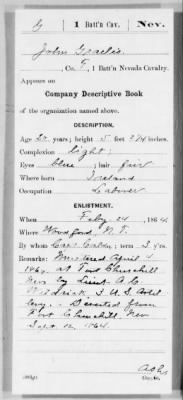 G | 1 Batt'n Cav. | Nev.
John
, Co. F, 1 Batt'n Nevada Cavalry.
Appears on
Company Descriptive Book
of the organization named above.
DESCRIPTION.
Age years; height 5 feet inches.
Complexion light
Eyes blue; hair fair
Where born Ireland
Occupation Laborer
ENLISTMENT.
When Feby 24, 1864.
Where N.T.
By whom Capt. ; term 3 y'rs.
Remarks: Mustered April
1864 at Fort Churchill
Nev by Lieut A.
3 U.S. Artil
lery. Deserted from
Fort Churchill, Nev
Sept. 12, 1864.